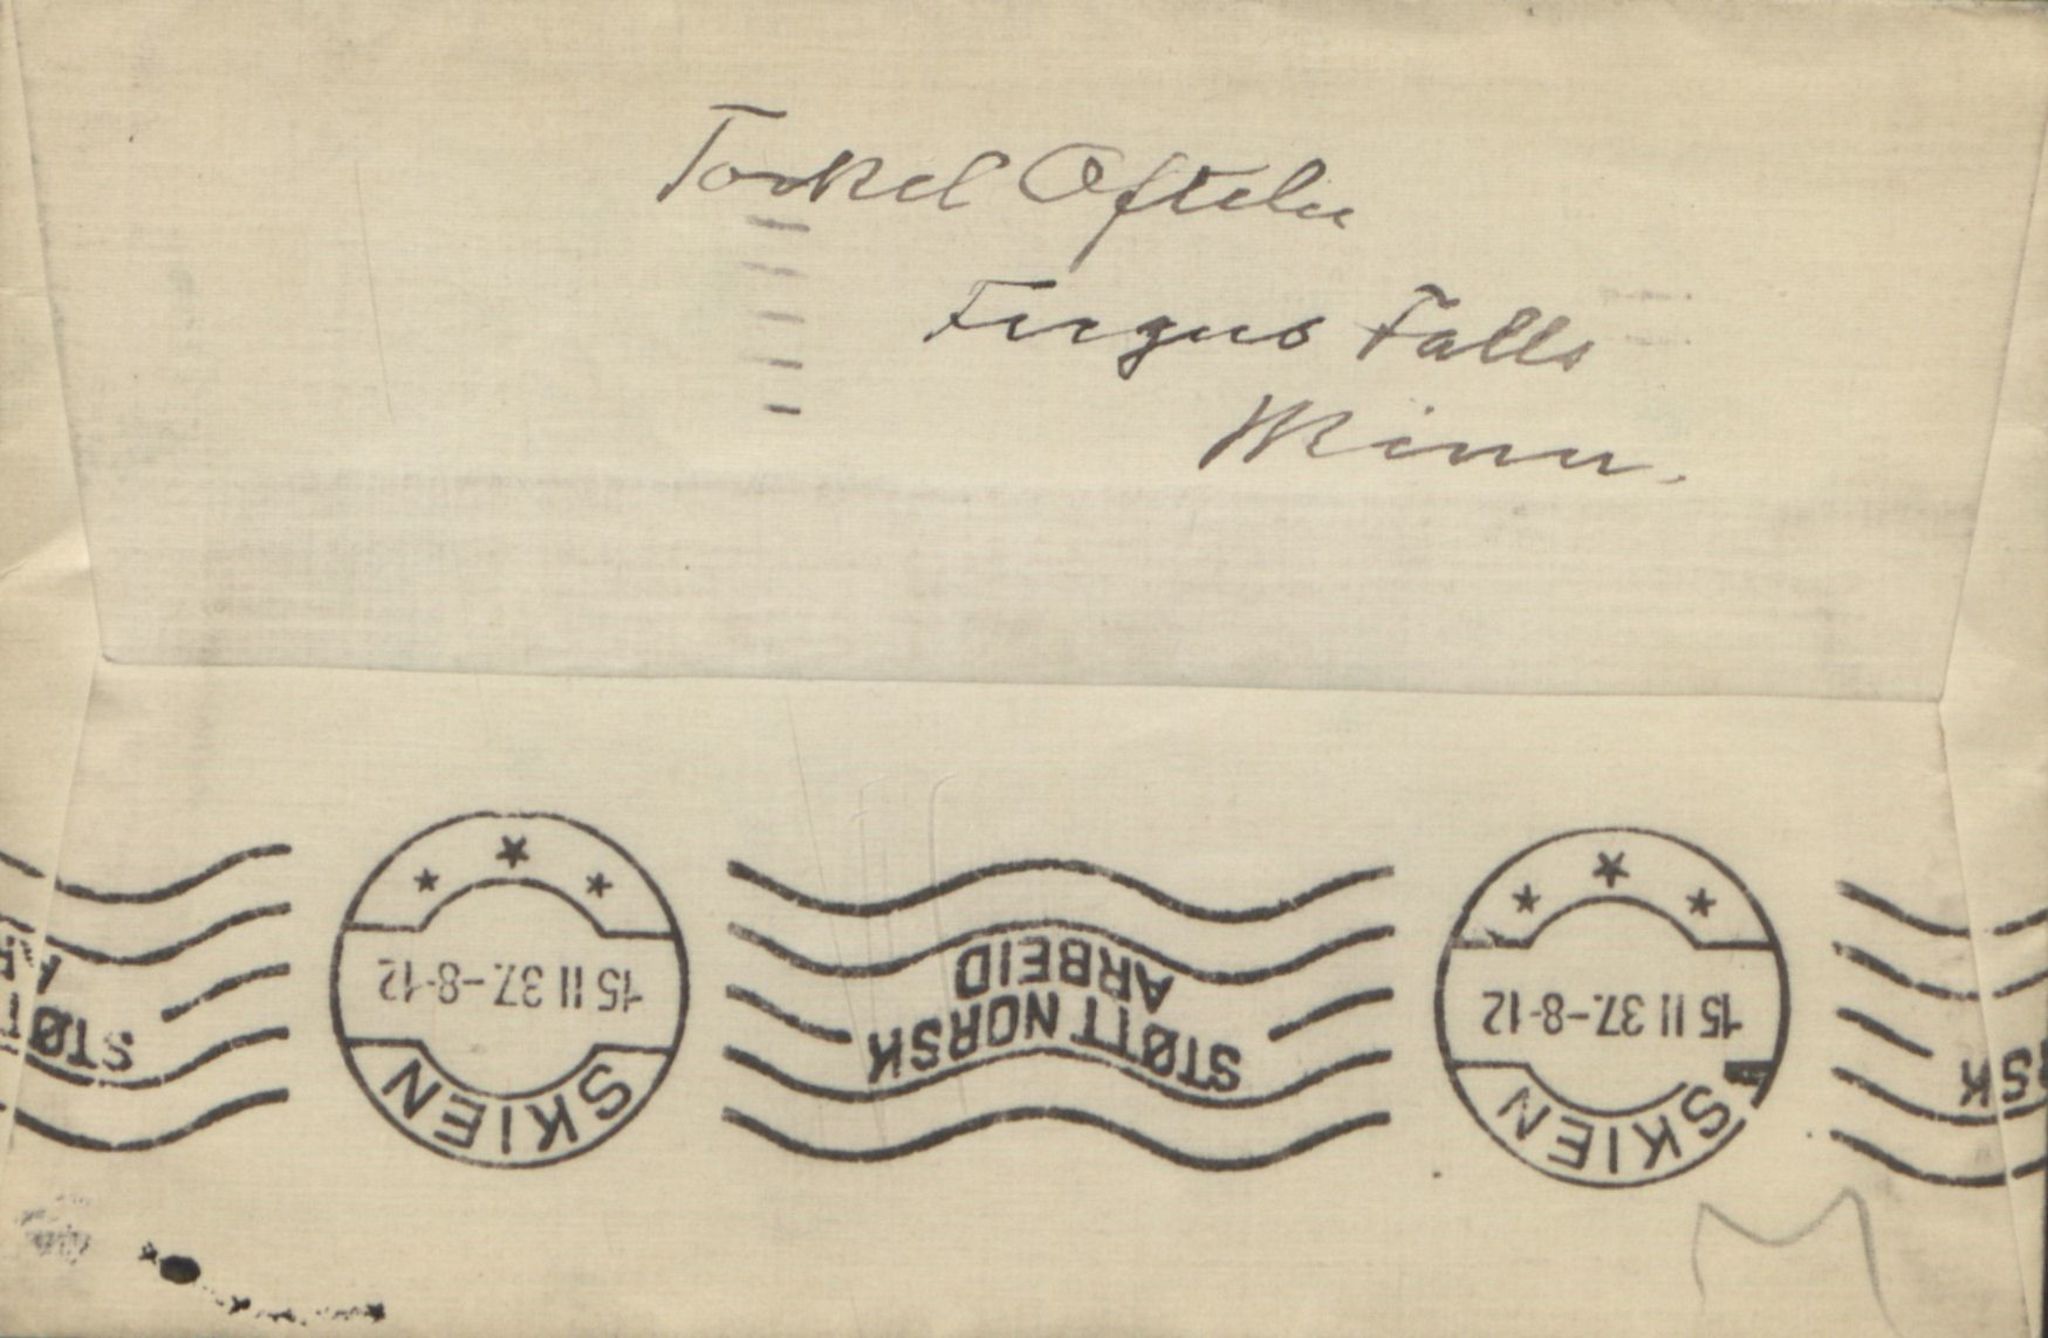 Torkel Oftelie
Fergus Falls
Minn.
SKIEN
15 II 37.-8-12
STØTT NORSK
ARBEID
SKIEN
15 II 37.-8-12
STØT
RSK